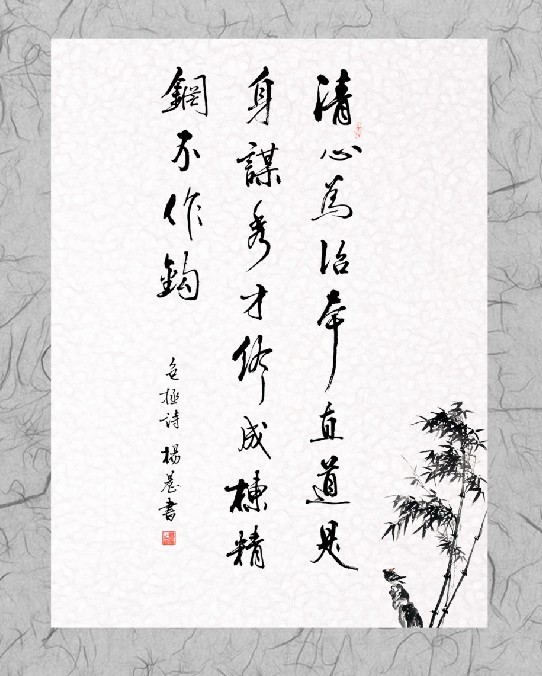 清心為治本直道是
身謀秀才終成棟精
鋼不作鈎
包拯詩 楊卷書